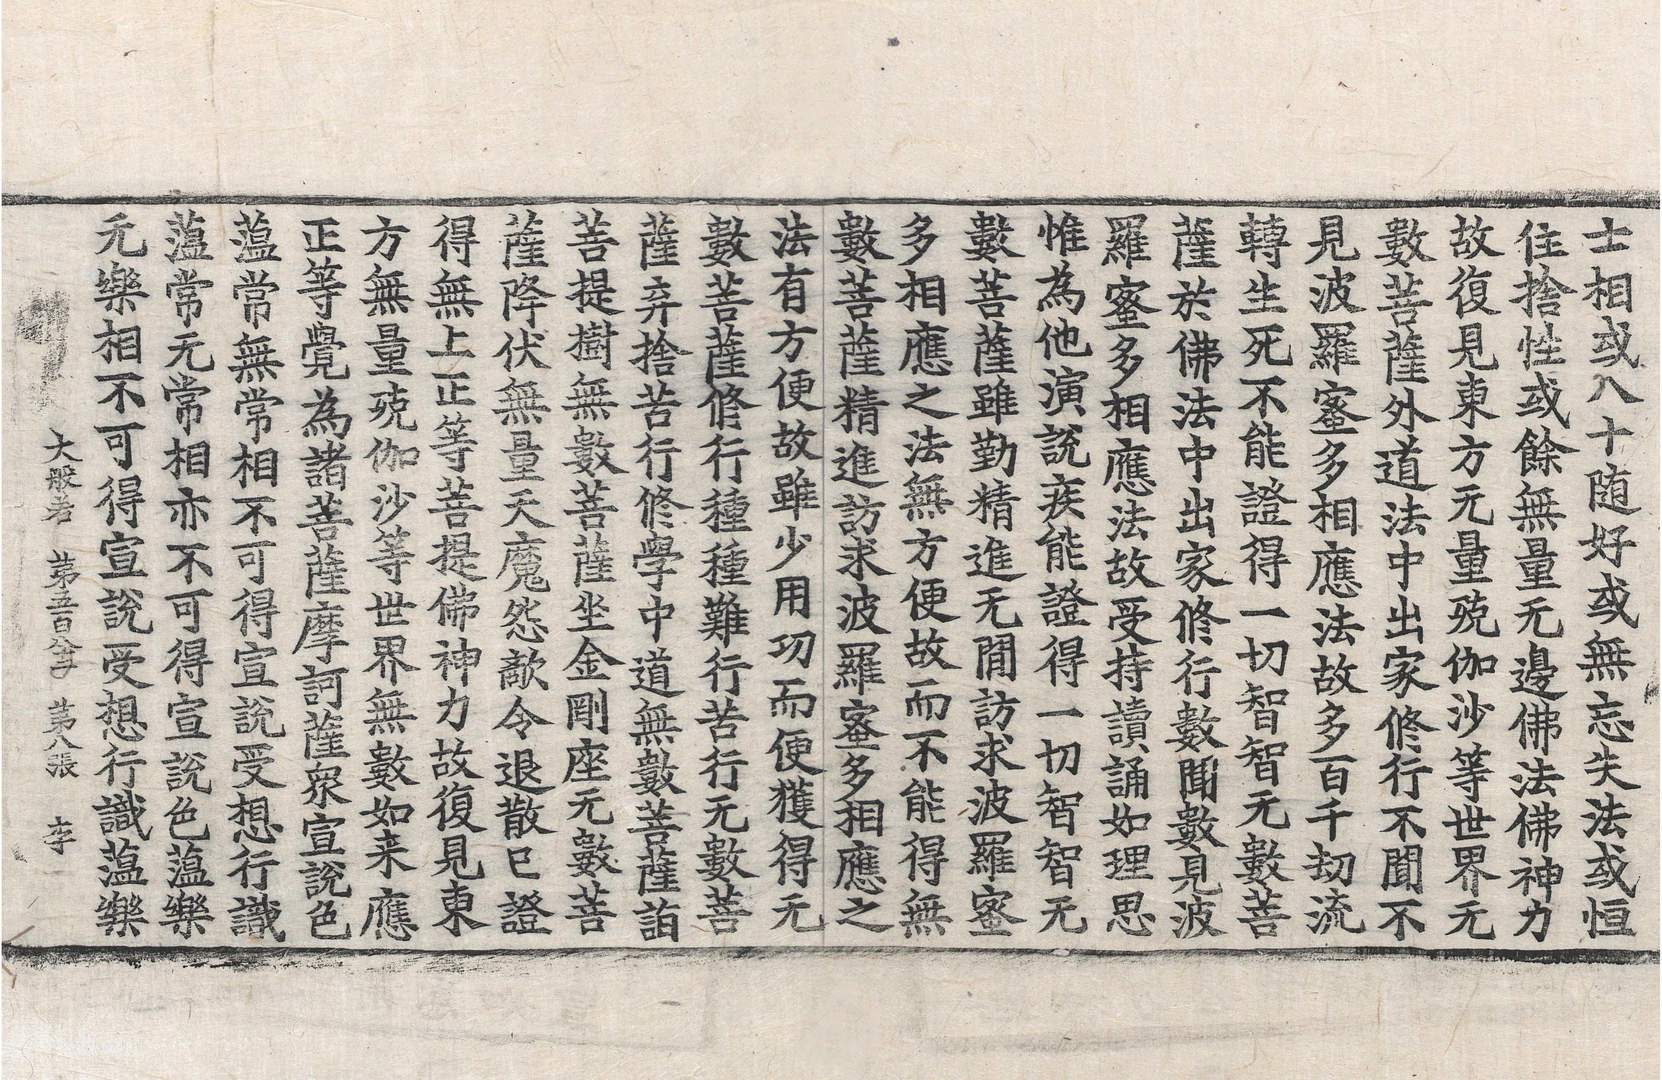 士相或八十随好或無忘失法或恒
住捨性或餘無量无邊佛法佛神力
故復見東方无量殑伽沙等世界无
數菩薩外道法中出家修行不聞不
見波羅蜜多相應法故多百千劫流
轉生死不能證得一切智智无數菩
薩於佛法中出家修行數聞數見波
羅蜜多相應法故受持讀誦如理思
惟為他演說疾能證得一切智智无
數菩薩雖勤精進无閒訪求波羅蜜
多相應之法無方便故而不能得無
數菩薩精進訪求波羅蜜多相應之
法有方便故雖少用功而便獲得无
數菩薩修行種種難行苦行无數菩
薩弃捨苦行修學中道無數菩薩詣
菩提樹無數菩薩坐金剛座无數菩
薩降伏無量天魔怨敵令退散已證
得無上正等菩提佛神力故復見東
方無量殑伽沙等世界無數如来應
正等覺為諸菩薩摩訶薩衆宣說色
薀常無常相不可得宣說受想行識
薀常无常相亦不可得宣說色薀樂
无樂相不可得宣說受想行識薀樂
大般若 第五百六 第八張 李